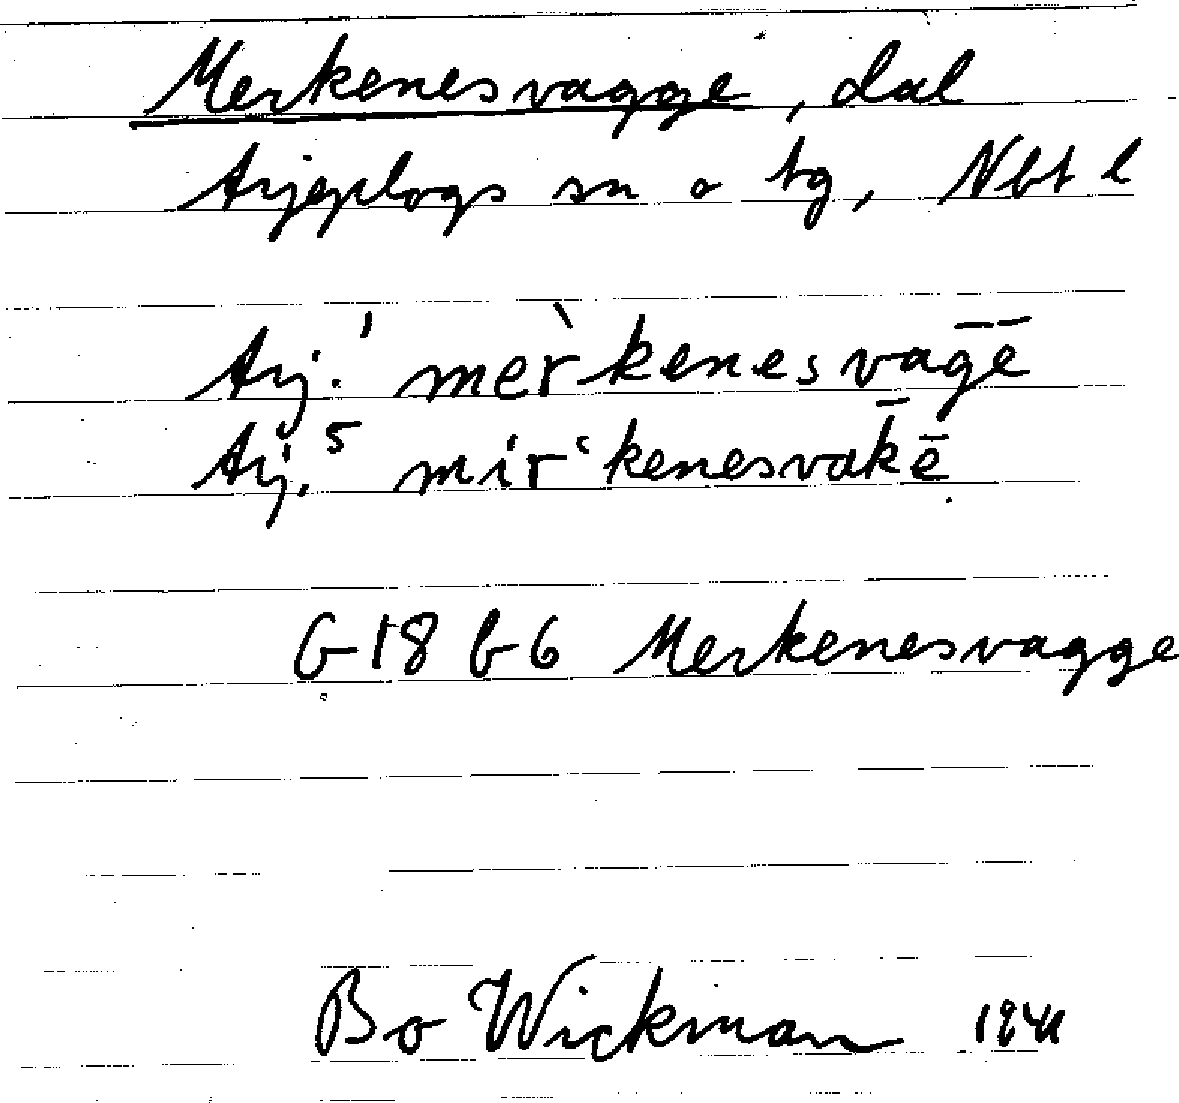 Merkenesvagge, dal
Arjeplogs sn o tg, Nbt l
Arj.¹ mer̀kenesvaḡē
Arj.⁵ mírʿkenesvak̄ē
G 18 b 6 Merkenesvagge
Bo Wickman